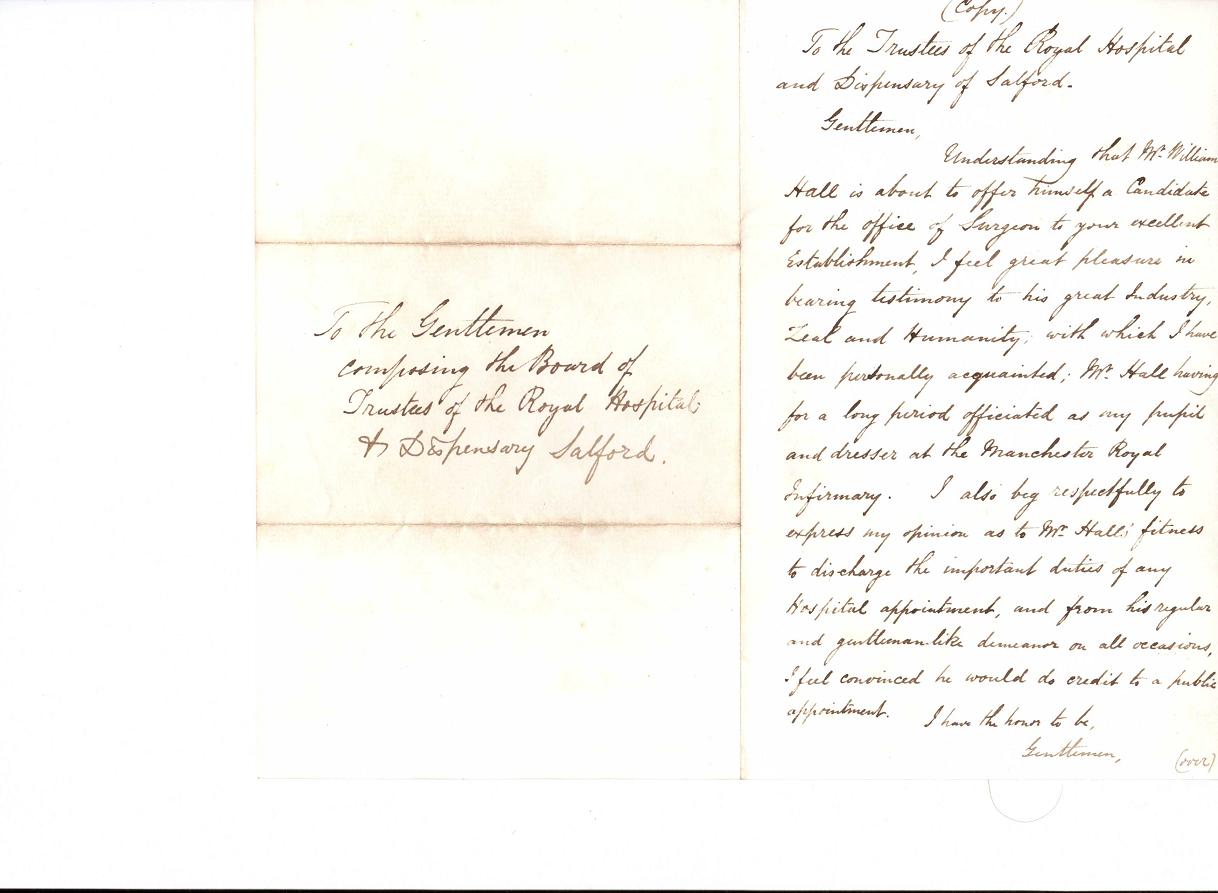 To the Gentlemen
composing the Board of
Trustees of the Royal Hospital
& Dispensary Salford.
(Copy.)
To the Trustees of the Royal Hospital
and Dispensary of Salford.
Gentlemen,
Understanding that Mr. William
Hall is about to offer himself a Candidate
for the office of Surgeon to your excellent
Establishment, I feel great pleasure in
bearing testimony to his great Industry,
Zeal and Humanity, with which I have
been personally acquainted; Mr. Hall having
for a long period officiated as my pupil
and dresser at the Manchester Royal
Infirmary. I also beg respectfully to
express my opinion as to Mr. Hall's fitness
to discharge the important duties of any
Hospital appointment, and from his regular
and gentleman-like demeanor on all occasions,
I feel convinced he would do credit to a public
appointment. I have the honor to be,
Gentlemen,
(over)